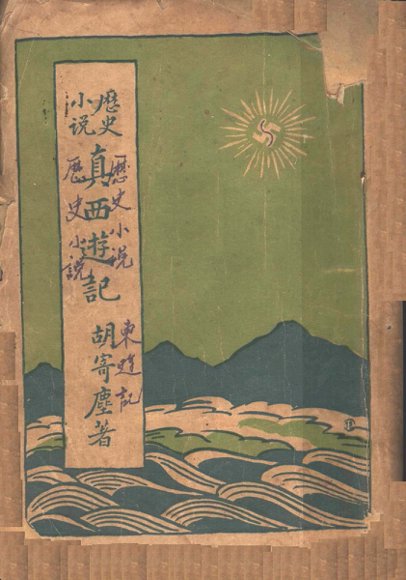 歷史
小说
真西遊記
胡寄塵著
歷史小说
東遊記
歷史小説